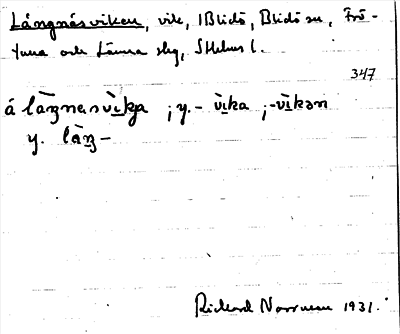 Långnäsviken, vik, 1 Blidö, Blidö sn, Frö-
tuna och Länna slg, Sthlms l.
347
á làŋnesvìka ; y. -vìka ; -vìkən
y. làŋ-
Rickard 1931.